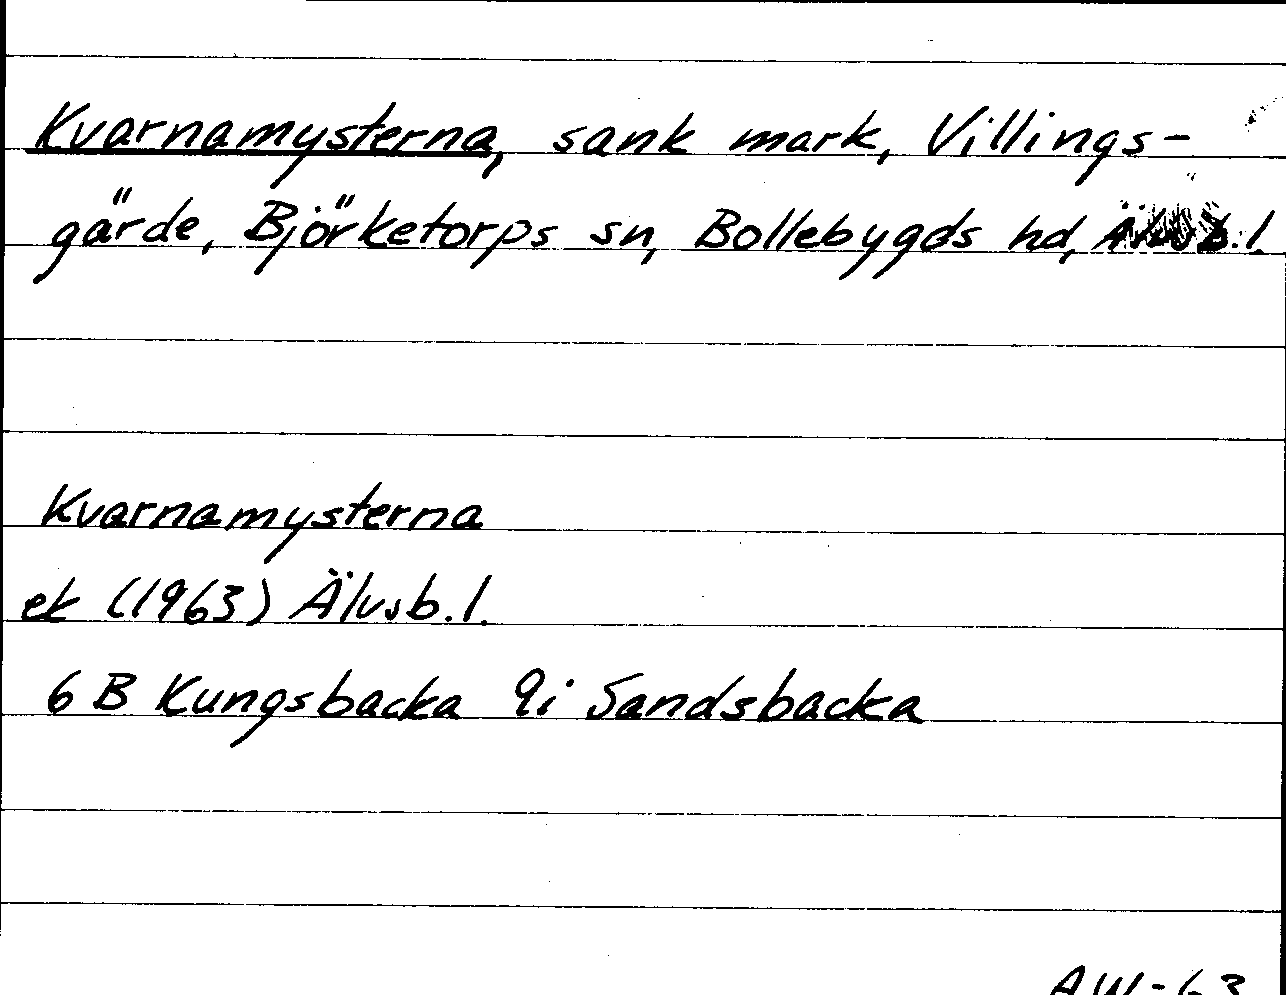 Kvarnamysterna, sank mark, Villings-
gärde, Björketorps sn, Bollebygds hd, Älvsb.l.
Kvarnamysterna
ek (1963) Älvsb.l.
6 B Kungsbacka 9i Sandsbacka
AW-63